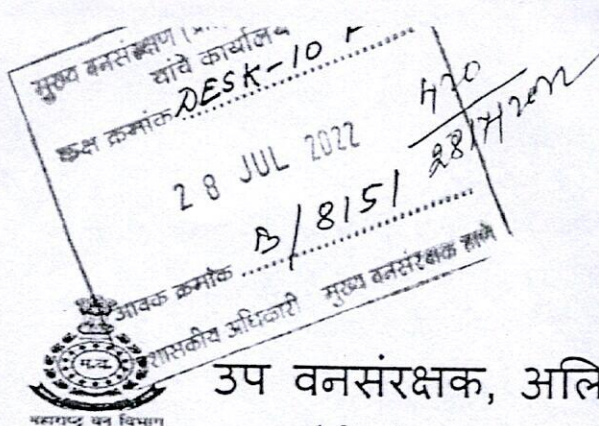 मुख्य वनसंरक्षण
यांचे कार्यालय
कक्ष क्रमांक DESK-10
28 JUL 2022
B/8151
आवक क्रमांक
शासकीय अधिकारी मुख्य वनसंरक्षक ठाणे
म.व.
महाराष्ट्र वन विभाग
उप वनसंरक्षक, अलि